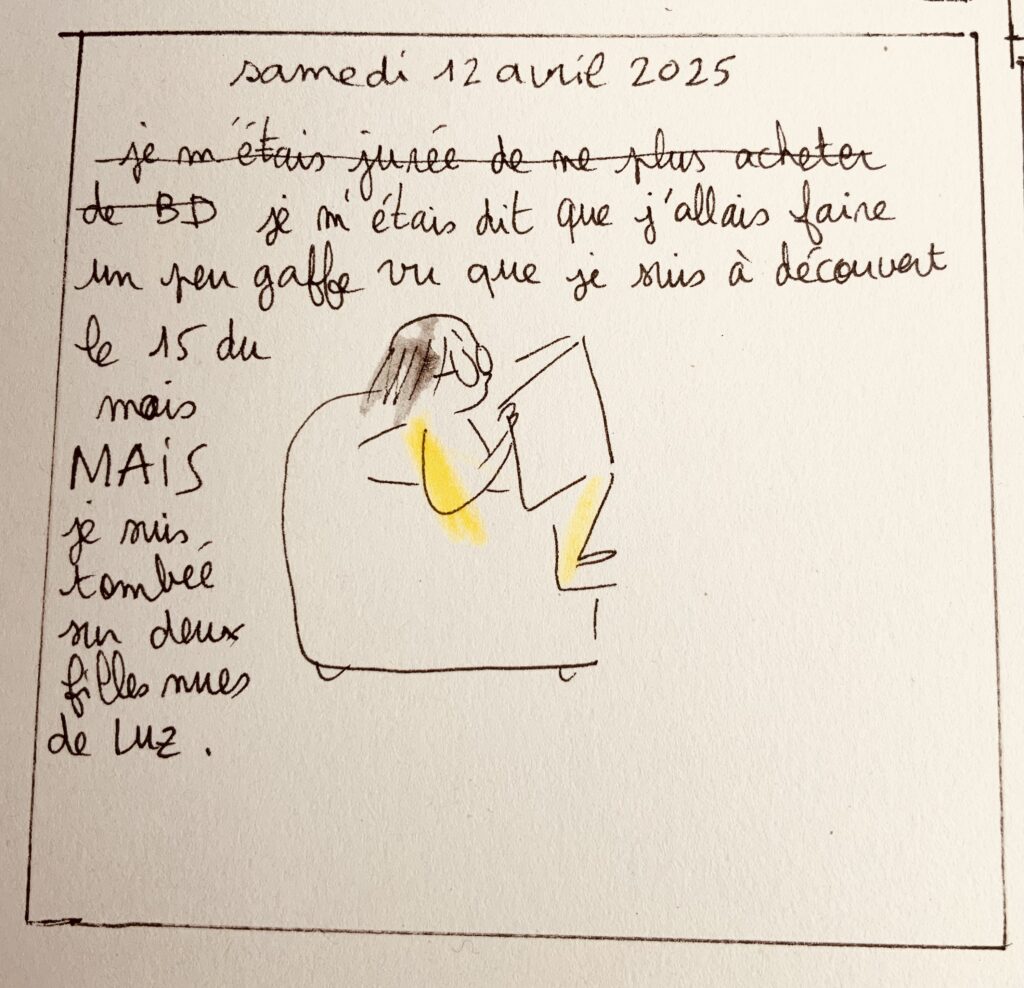 samedi 12 avril 2025
je m'étais jurée de ne plus acheter
de BD je m'étais dit que j'allais faire
un peu gaffe vu que je suis à découvert
le 15 du
mois
MAIS
je suis
tombée
sur deux
filles nues
de Luz.